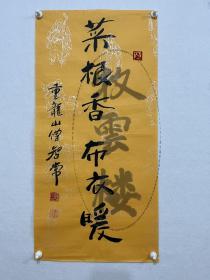 菜根香布衣暖
牧雲楼
重龍山僧智常